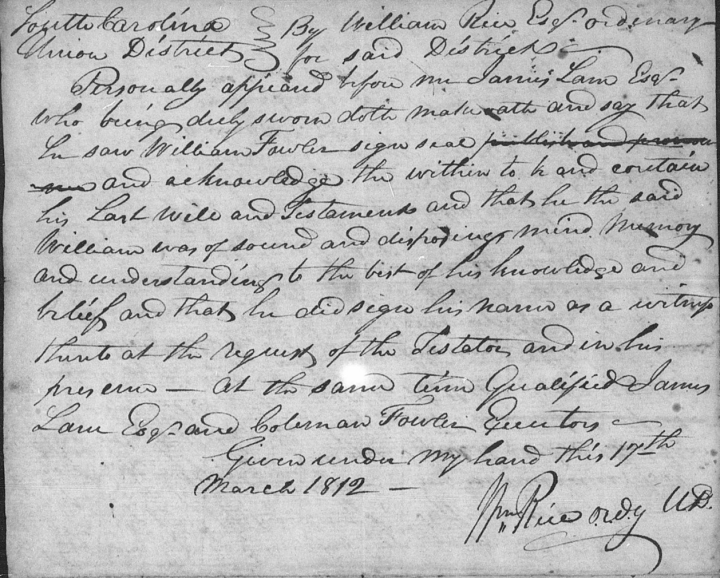 South Carolina By William Rice Esqr. ordenary
Union District for said District
Personally appeared before me James Lam Esqr.
who being duly sworn doth make oath and say that
he saw William Fowler sign seal publish and pronou
nce and acknowledge the within to be and contain
his Last Will and Testament and that he the said
William was of sound and disposing mind Memory
and understanding to the best of his knowledge and
belief and that he did sign his name as a witness
thereto at the request of the Testator and in his
presence — At the same time Qualified James
Lam Esqr. and Coleman Fowler Executors —
Given under my hand this 17th
March 1812 —
Wm Rice ordy UD.